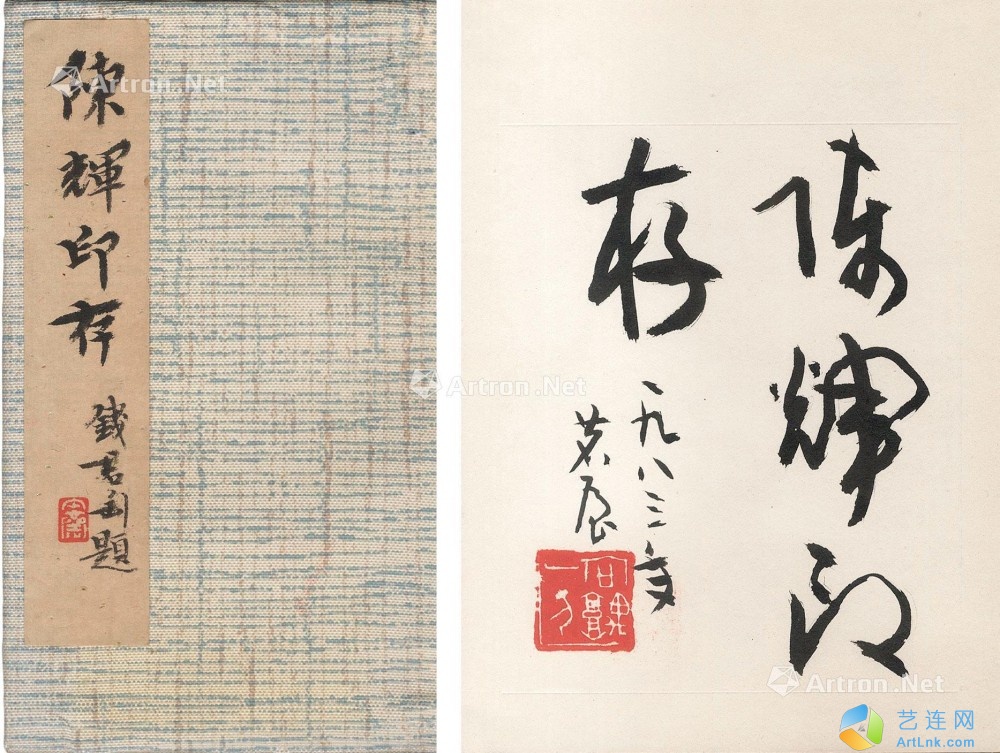 陳輝印存
錢君匋題
陈辉印
存
一九八三年
Artron.Net
Artron.Net
Artron.Net
艺连网
ArtLnk.com